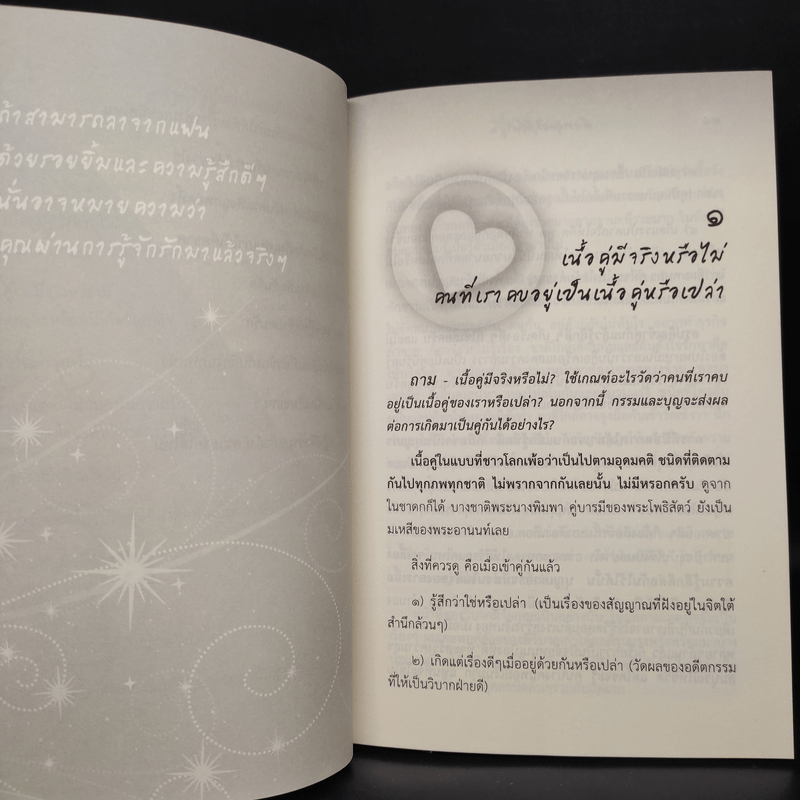 ถ้าสามารถลาจากแฟน
ด้วยรอยยิ้มและความรู้สึกดีๆ
นั่นอาจหมายความว่า
คุณผ่านการรู้จักรักมาแล้วจริงๆ
๑
เนื้อคู่มีจริงหรือไม่
คนที่เราคบอยู่เป็นเนื้อคู่หรือเปล่า
ถาม - เนื้อคู่มีจริงหรือไม่? ใช้เกณฑ์อะไรวัดว่าคนที่เราคบ
อยู่เป็นเนื้อคู่ของเราหรือเปล่า? นอกจากนี้ กรรมและบุญจะส่งผล
ต่อการเกิดมาเป็นคู่กันได้อย่างไร?
เนื้อคู่ในแบบที่ชาวโลกเพ้อว่าเป็นไปตามอุดมคติ ชนิดที่ติดตาม
กันไปทุกภพทุกชาติ ไม่พรากจากกันเลยนั้น ไม่มีหรอกครับ ดูจาก
ในชาดกก็ได้ บางชาติพระนางพิมพา คู่บารมีของพระโพธิสัตว์ ยังเป็น
มเหสีของพระอานนท์เลย
สิ่งที่ควรดู คือเมื่อเข้าคู่กันแล้ว
๑) รู้สึกว่าใช่หรือเปล่า (เป็นเรื่องของสัญญาณที่ฝังอยู่ในจิตใต้
สำนึกล้วนๆ)
๒) เกิดแต่เรื่องดีๆเมื่ออยู่ด้วยกันหรือเปล่า (วัดผลของอดีตกรรม
ที่ให้เป็นวิบากฝ่ายดี)